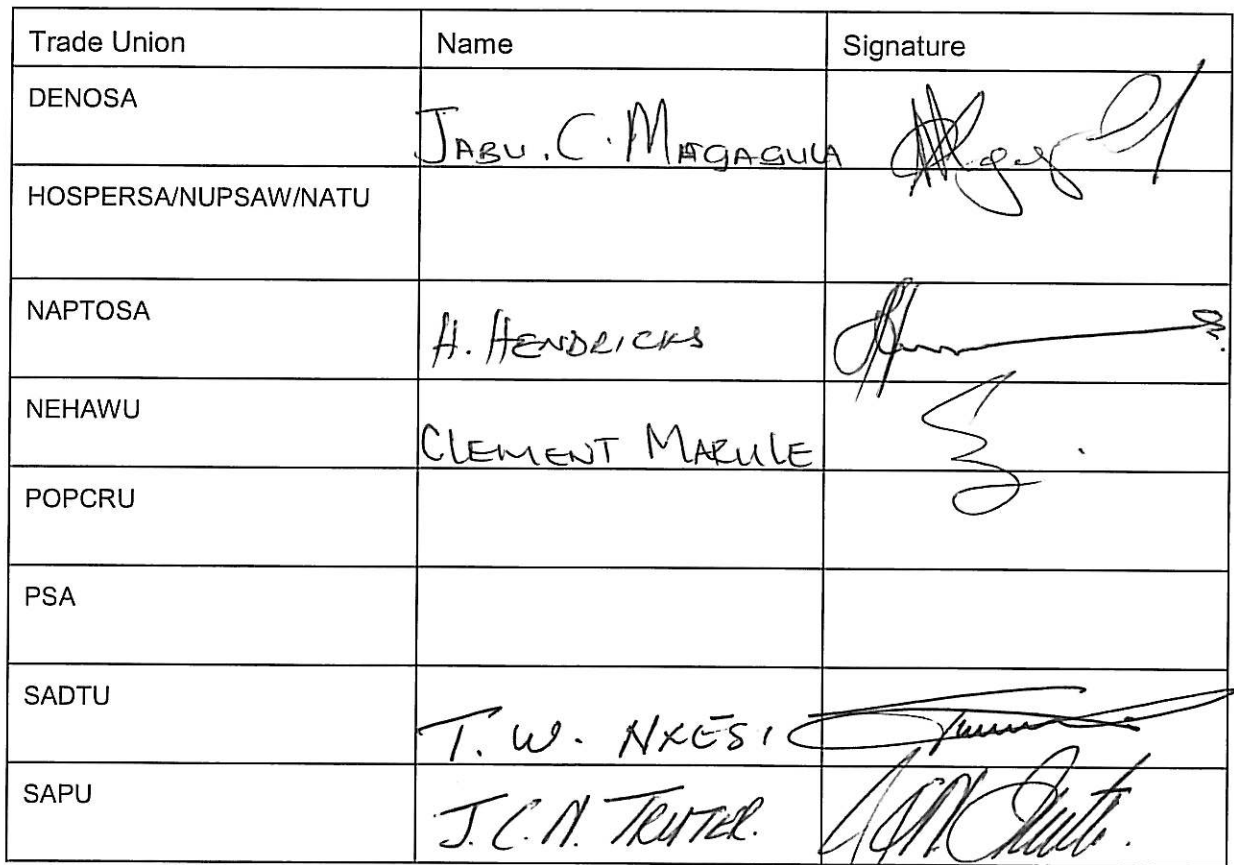 Trade Union Name Signature
DENOSA JABU. C. MAGAGULA
HOSPERSA/NUPSAW/NATU
NAPTOSA H. HENDRICKS
NEHAWU CLEMENT MARULE
POPCRU
PSA
SADTU T. W. NXESI
SAPU J.C.N. TRUTER.